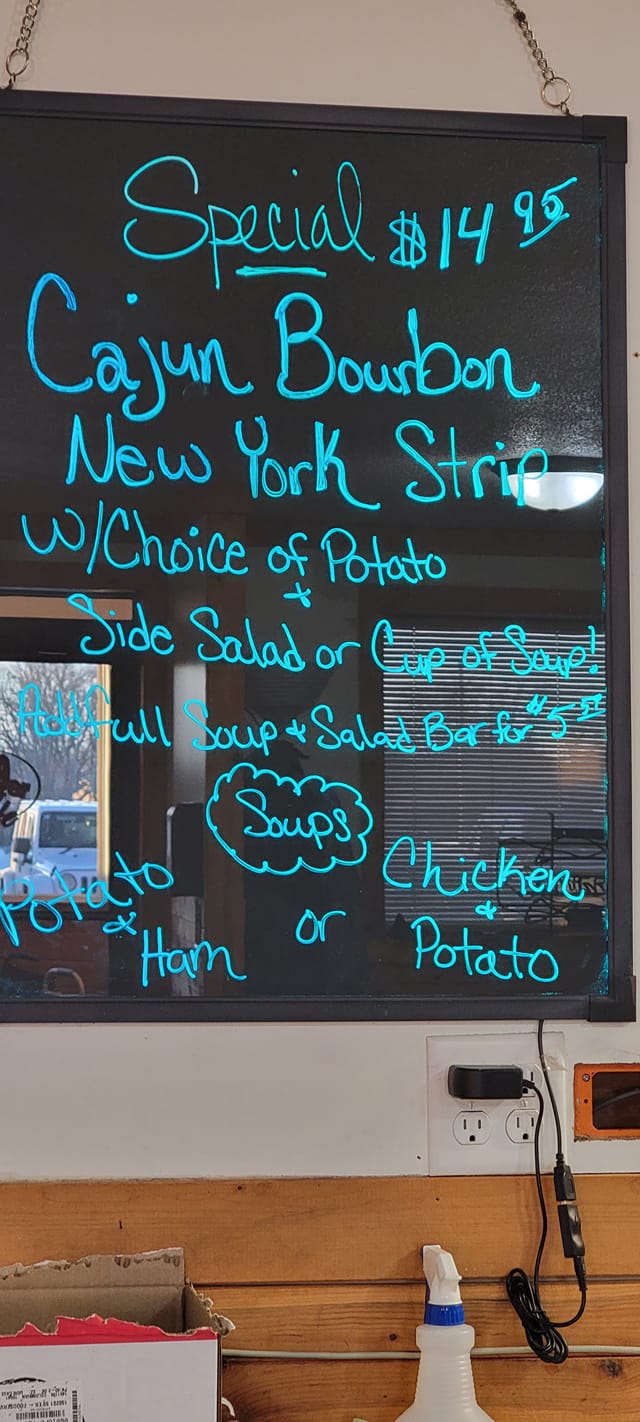 Special $14 95
Cajun Bourbon
New York Strip
W/Choice of Potato
+
Side Salad or Cup of Soup!
Add Full Soup & Salad Bar for $5
Soups
Potato & Ham or Chicken & Potato